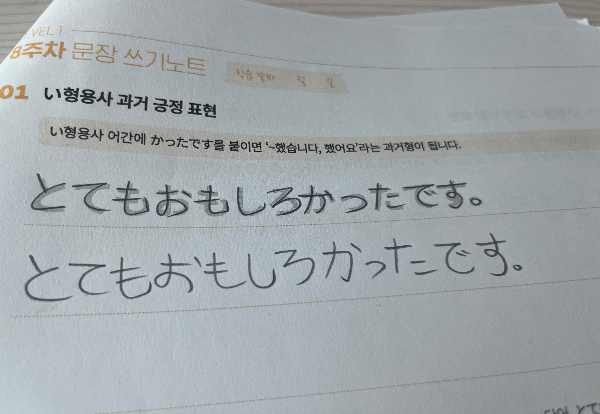 LEVEL 1
8주차 문장 쓰기노트
학습 날짜 월 일
01 い형용사 과거 긍정 표현
い형용사 어간에 かったです를 붙이면 '~했습니다, 했어요'라는 과거형이 됩니다.
とてもおもしろかったです。
とてもおもしろかったです。